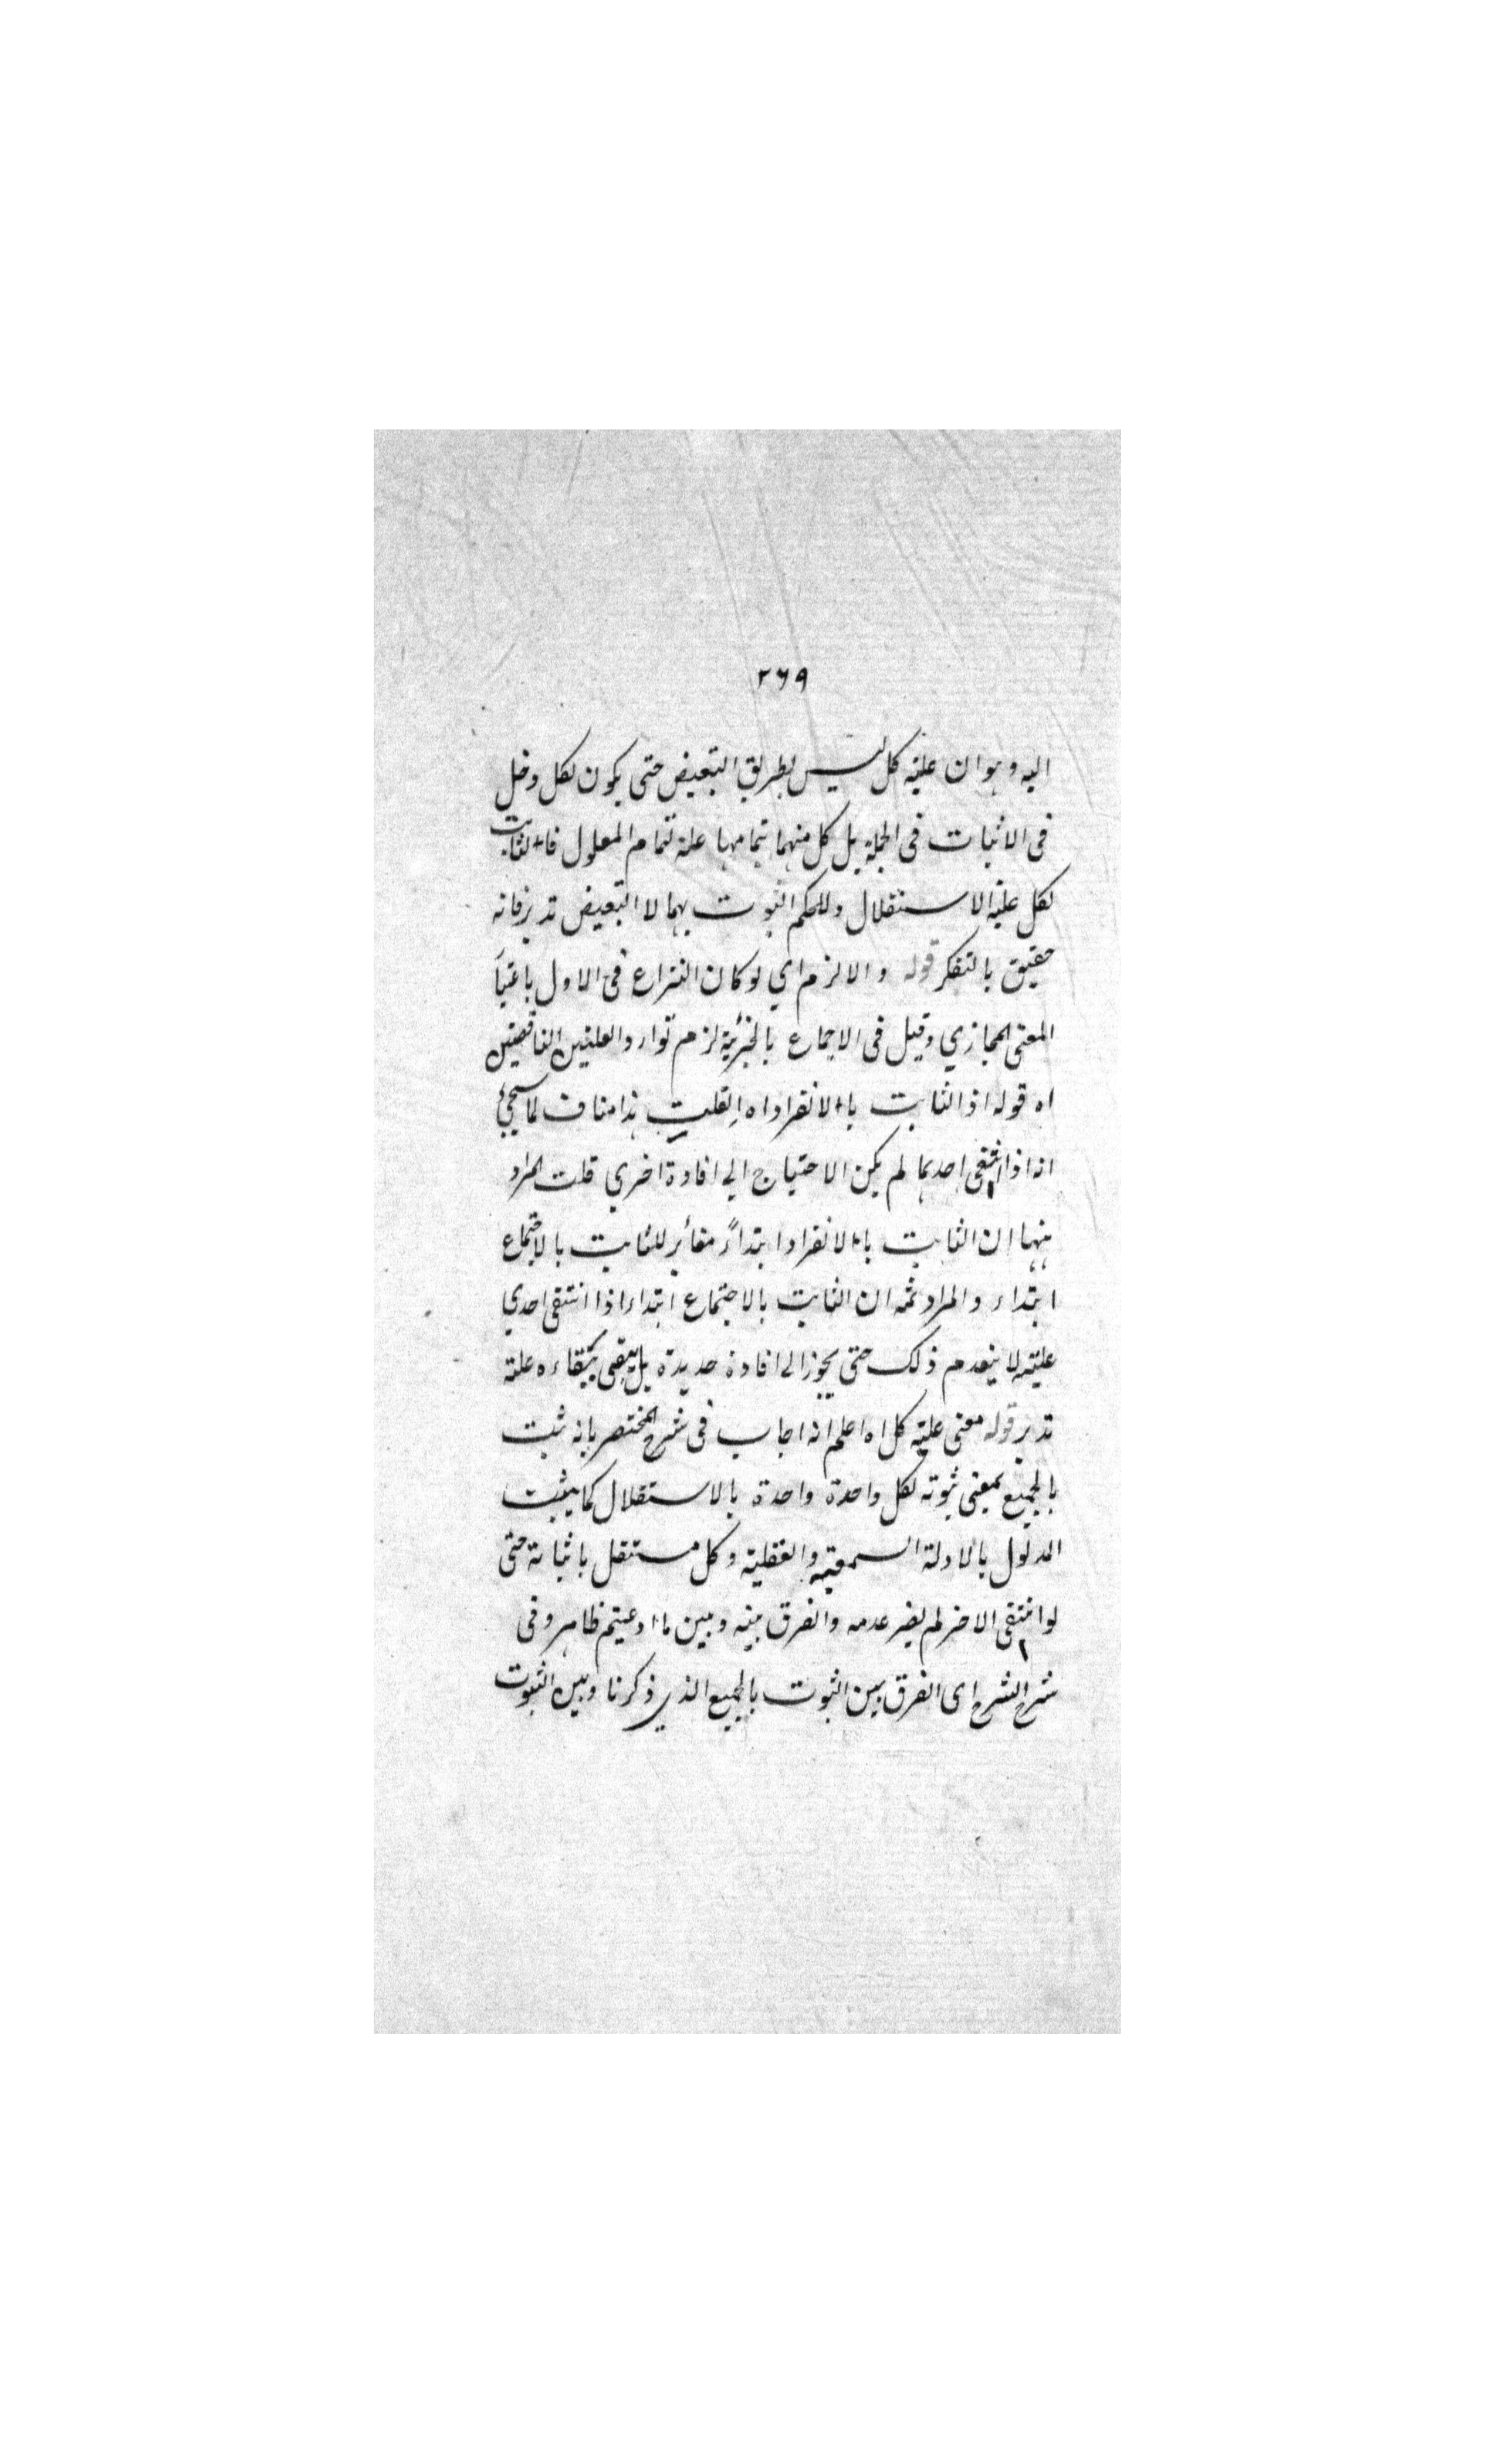 ٢٦٩
اليه وهو ان علية كل ليس بطريق التبعيض حتى يكون لكل دخل
فى الاثبات فى الجملة بل كل منهما بتمامها علة لتمام المعلول فالثابت
لكل علية الاستقلال وللحكم الثبوت بهما لا التبعيض تدبر فانه
حقيق بالتفكر قوله والا لزم اي لو كان النزاع فى الاول باعتبا
المعنى المجازي وقيل فى الاجماع بالجزئية لزم توارد العلتين الناقصتين
اه قوله اذ الثابت بالانفراد اه ان قلت هذا مناف لما سيجئ
انه اذا انتفى احدهما لم يكن الاحتياج الى افادة اخرى قلت المراد
ههنا ان الثابت بالانفراد ابتداءً مغائر للثابت بالاجتماع
ابتداء والمراد ثمه ان الثابت بالاجتماع ابتداء اذا انتفى احدي
علتيه لا ينعدم ذلك حتى يحوز الى افادة جديدة بل يبقى ببقاءه علة
تدبر قوله معنى علية كل اه اعلم انه اجاب فى شرح المختصر بانه ثبت
بالجميع بمعنى ثبوته لكل واحدة واحدة بالاستقلال كما يثبت
المدلول بالادلة السمعية والعقلية وكل مستقل باثباته حتى
لو انتفى الاخر لم يضر عدمه والفرق بينه وبين ما ادعيتم ظاهر وفى
شرح الشرح اى الفرق بين الثبوت بالجميع الذي ذكرنا وبين الثبوت